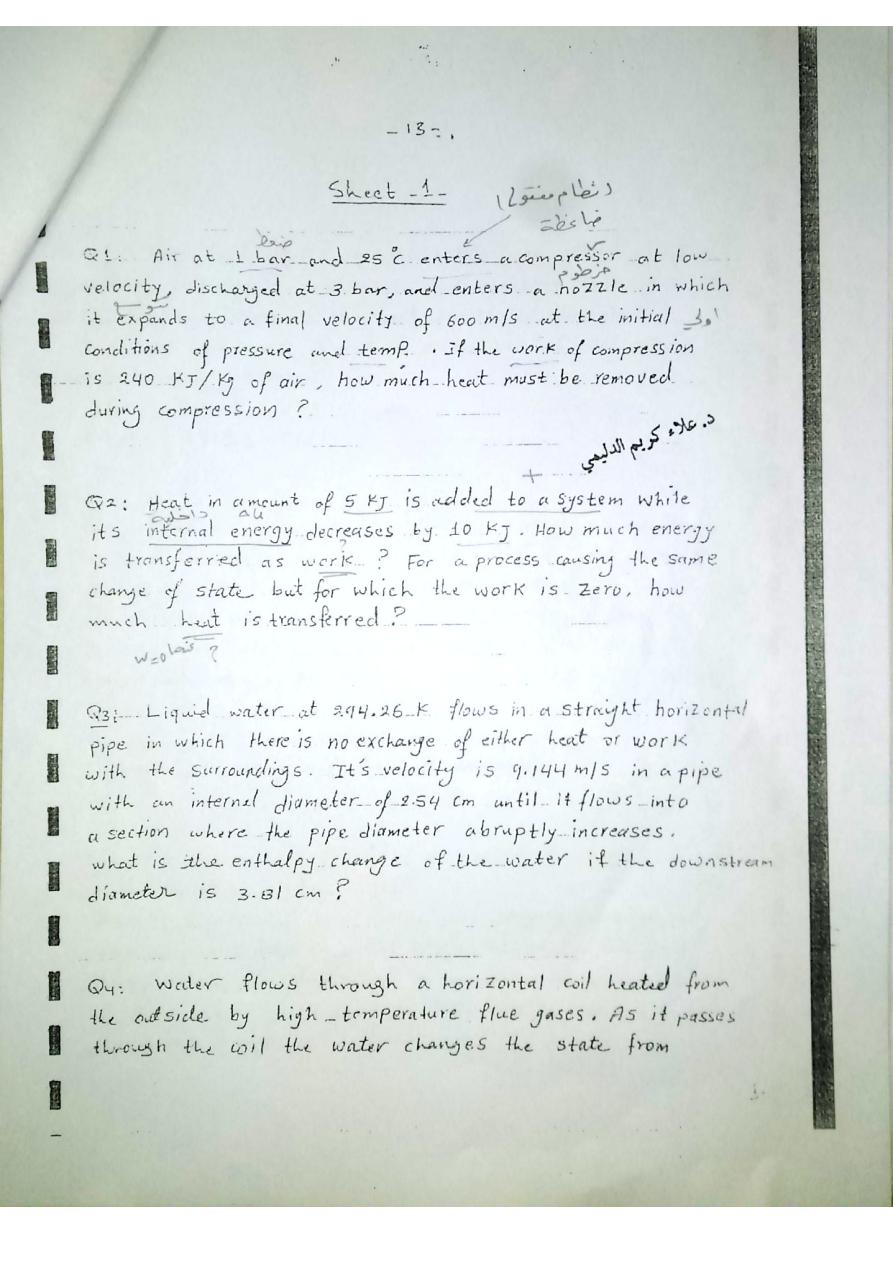 - 13 -
Sheet - 1 -
نظام مفتوح
ضاغطة
ضغط
Q1: Air at 1 bar and 25 °c enters a compressor at low
خرطوم
velocity, discharged at 3 bar, and enters a nozzle in which
it expands to a final velocity of 600 m/s at the initial اولي
conditions of pressure and temp. . If the work of compression
is 240 KJ/Kg of air, how much heat must be removed
during compression ?
د. علاء كريم الدليمي
+
Q2: Heat in amount of 5 KJ is added to a system while
داخلية
its internal energy decreases by 10 KJ. How much energy
is transferred as work ? For a process causing the same
change of state but for which the work is Zero, how
much heat is transferred ?
w=0 ?
Q3: Liquid water at 294.26 K flows in a straight horizontal
pipe in which there is no exchange of either heat or work
with the surroundings. It's velocity is 9.144 m/s in a pipe
with an internel diameter of 2.54 cm until it flows into
a section where the pipe diameter abruptly increases.
what is the enthalpy change of the water if the downstream
diameter is 3.81 cm ?
Q4: Water flows through a horizontal coil heated from
the outside by high-temperature flue gases. As it passes
through the coil the water changes the state from